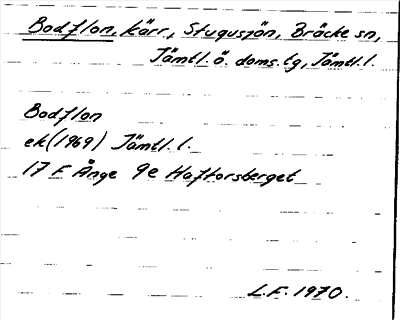 Bodflon, kärr, Stugusjön, Bräcke sn,
Jämtl. ö. doms. lg, Jämtl. l.
Bodflon
ek (1969) Jämtl. l.
17 F Ånge 9e Haftorsberget
L.F. 1970.